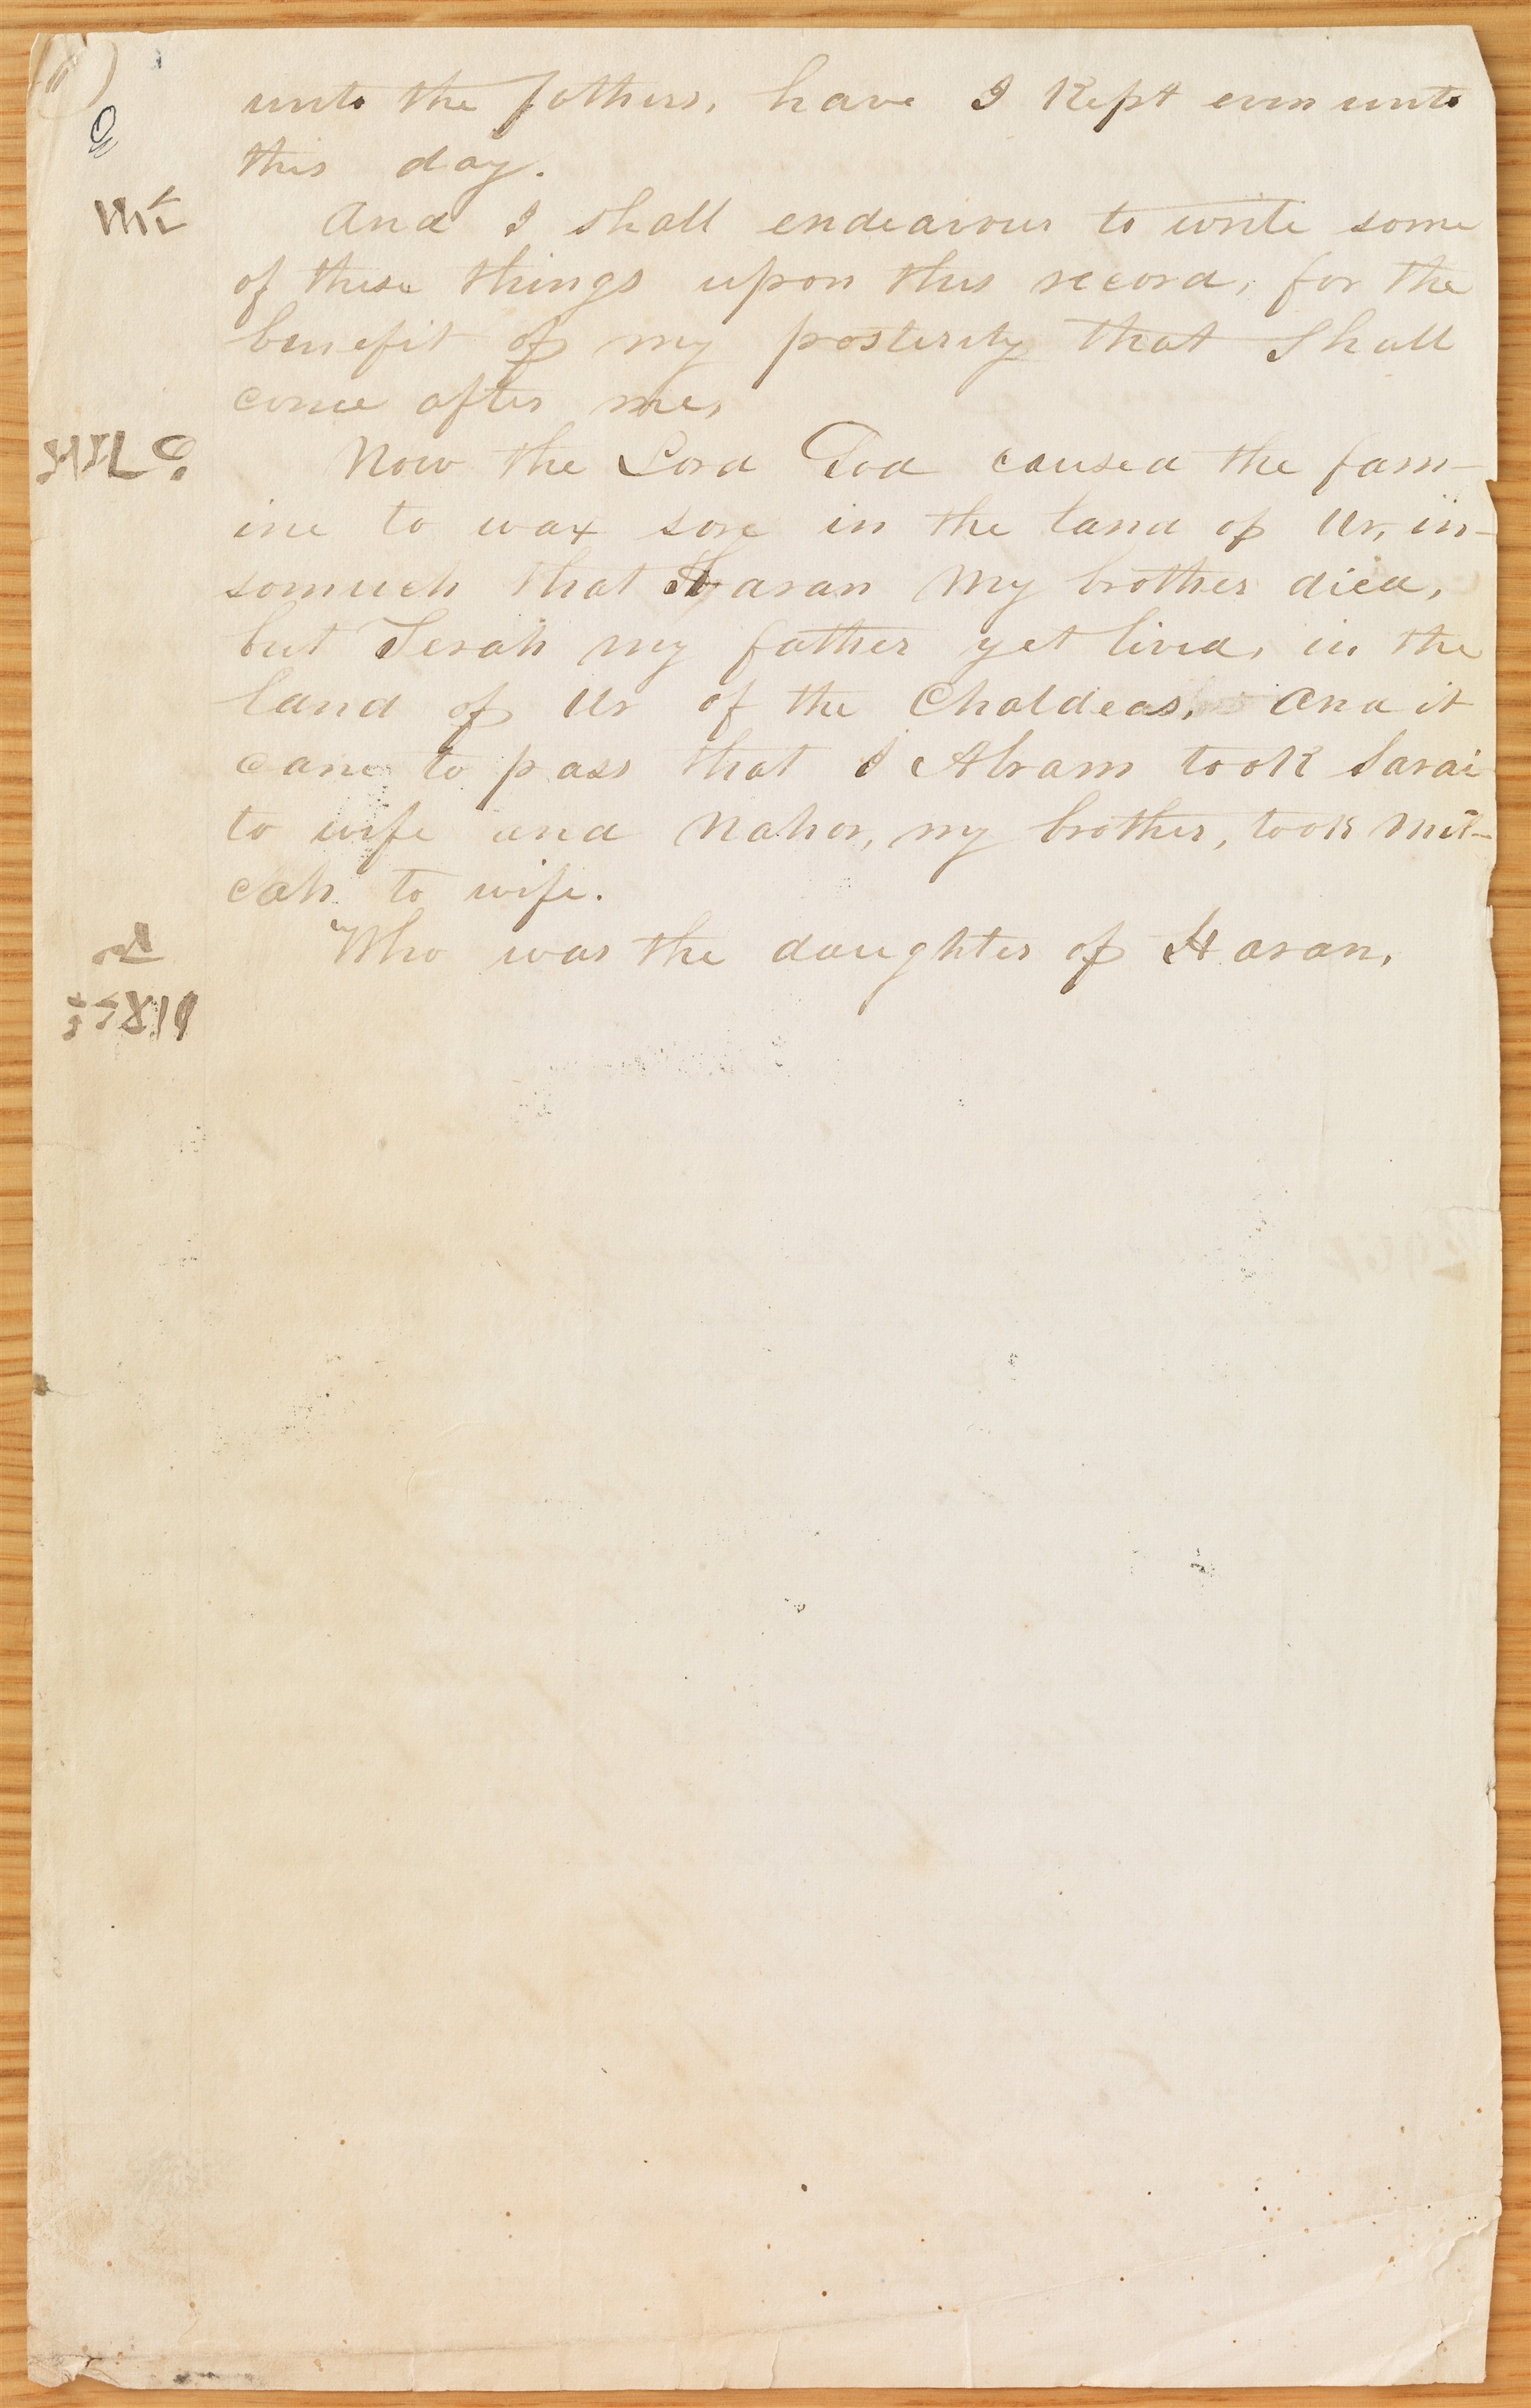 unto the fathers, have I kept even unto
this day.
And I shall endeavour to write some
of these things upon this record, for the
benefit of my posterity that shall
come after me,
Now the Lord God caused the fam-
ine to wax sore in the land of Ur, in-
somuch that Haran my brother died,
but Terah my father yet lived, in the
land of Ur of the Chaldeas, And it
came to pass that I Abram took Sarai
to wife and Nahor, my brother, took Mil-
cah to wife.
Who was the daughter of Haran,